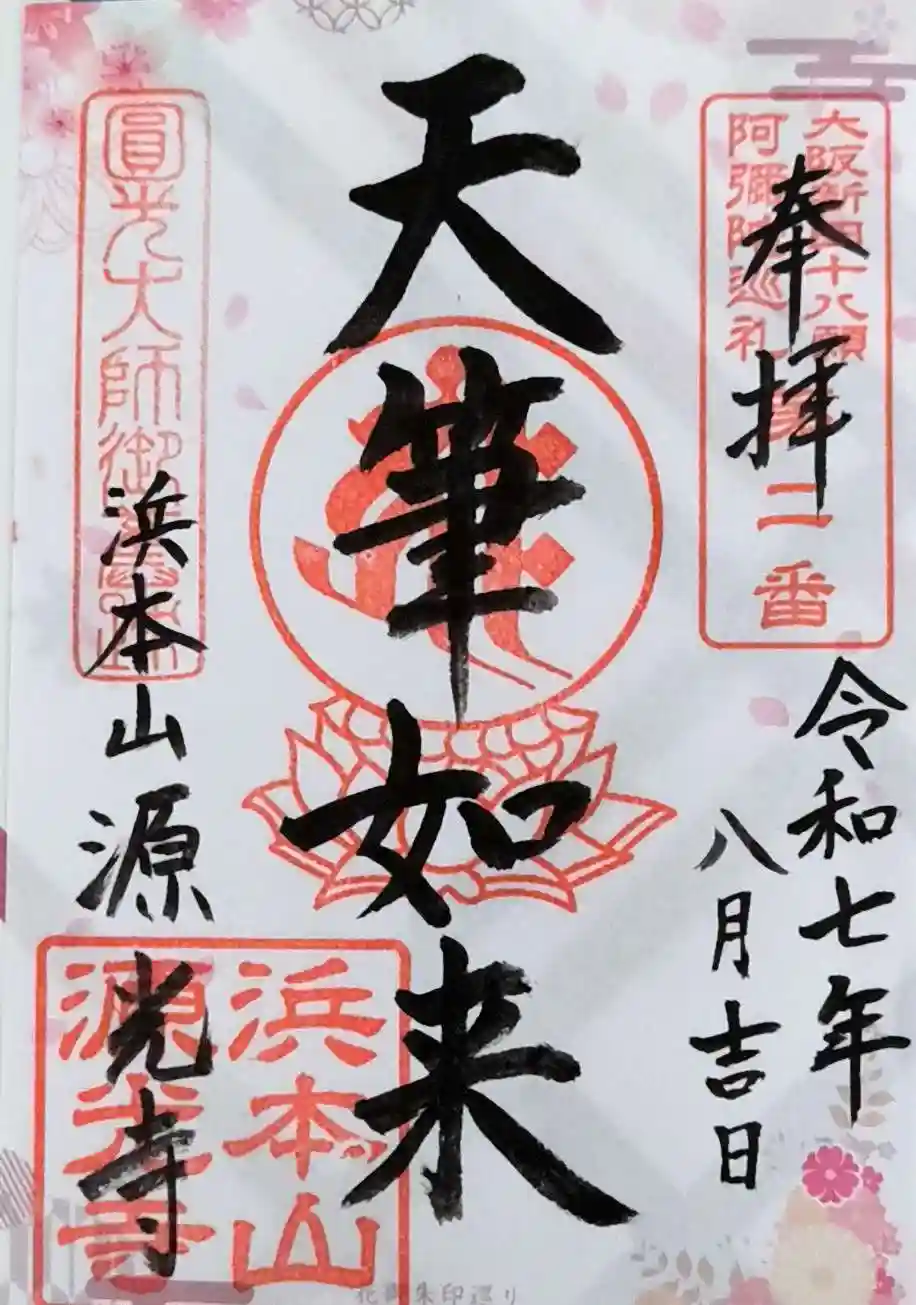 奉拝
大阪新四十八願
阿彌陀巡礼
二番
令和七年
八月吉日
天筆如来
圓光大師御舊跡
浜本山源光寺
浜本山
源光寺
花御朱印巡り